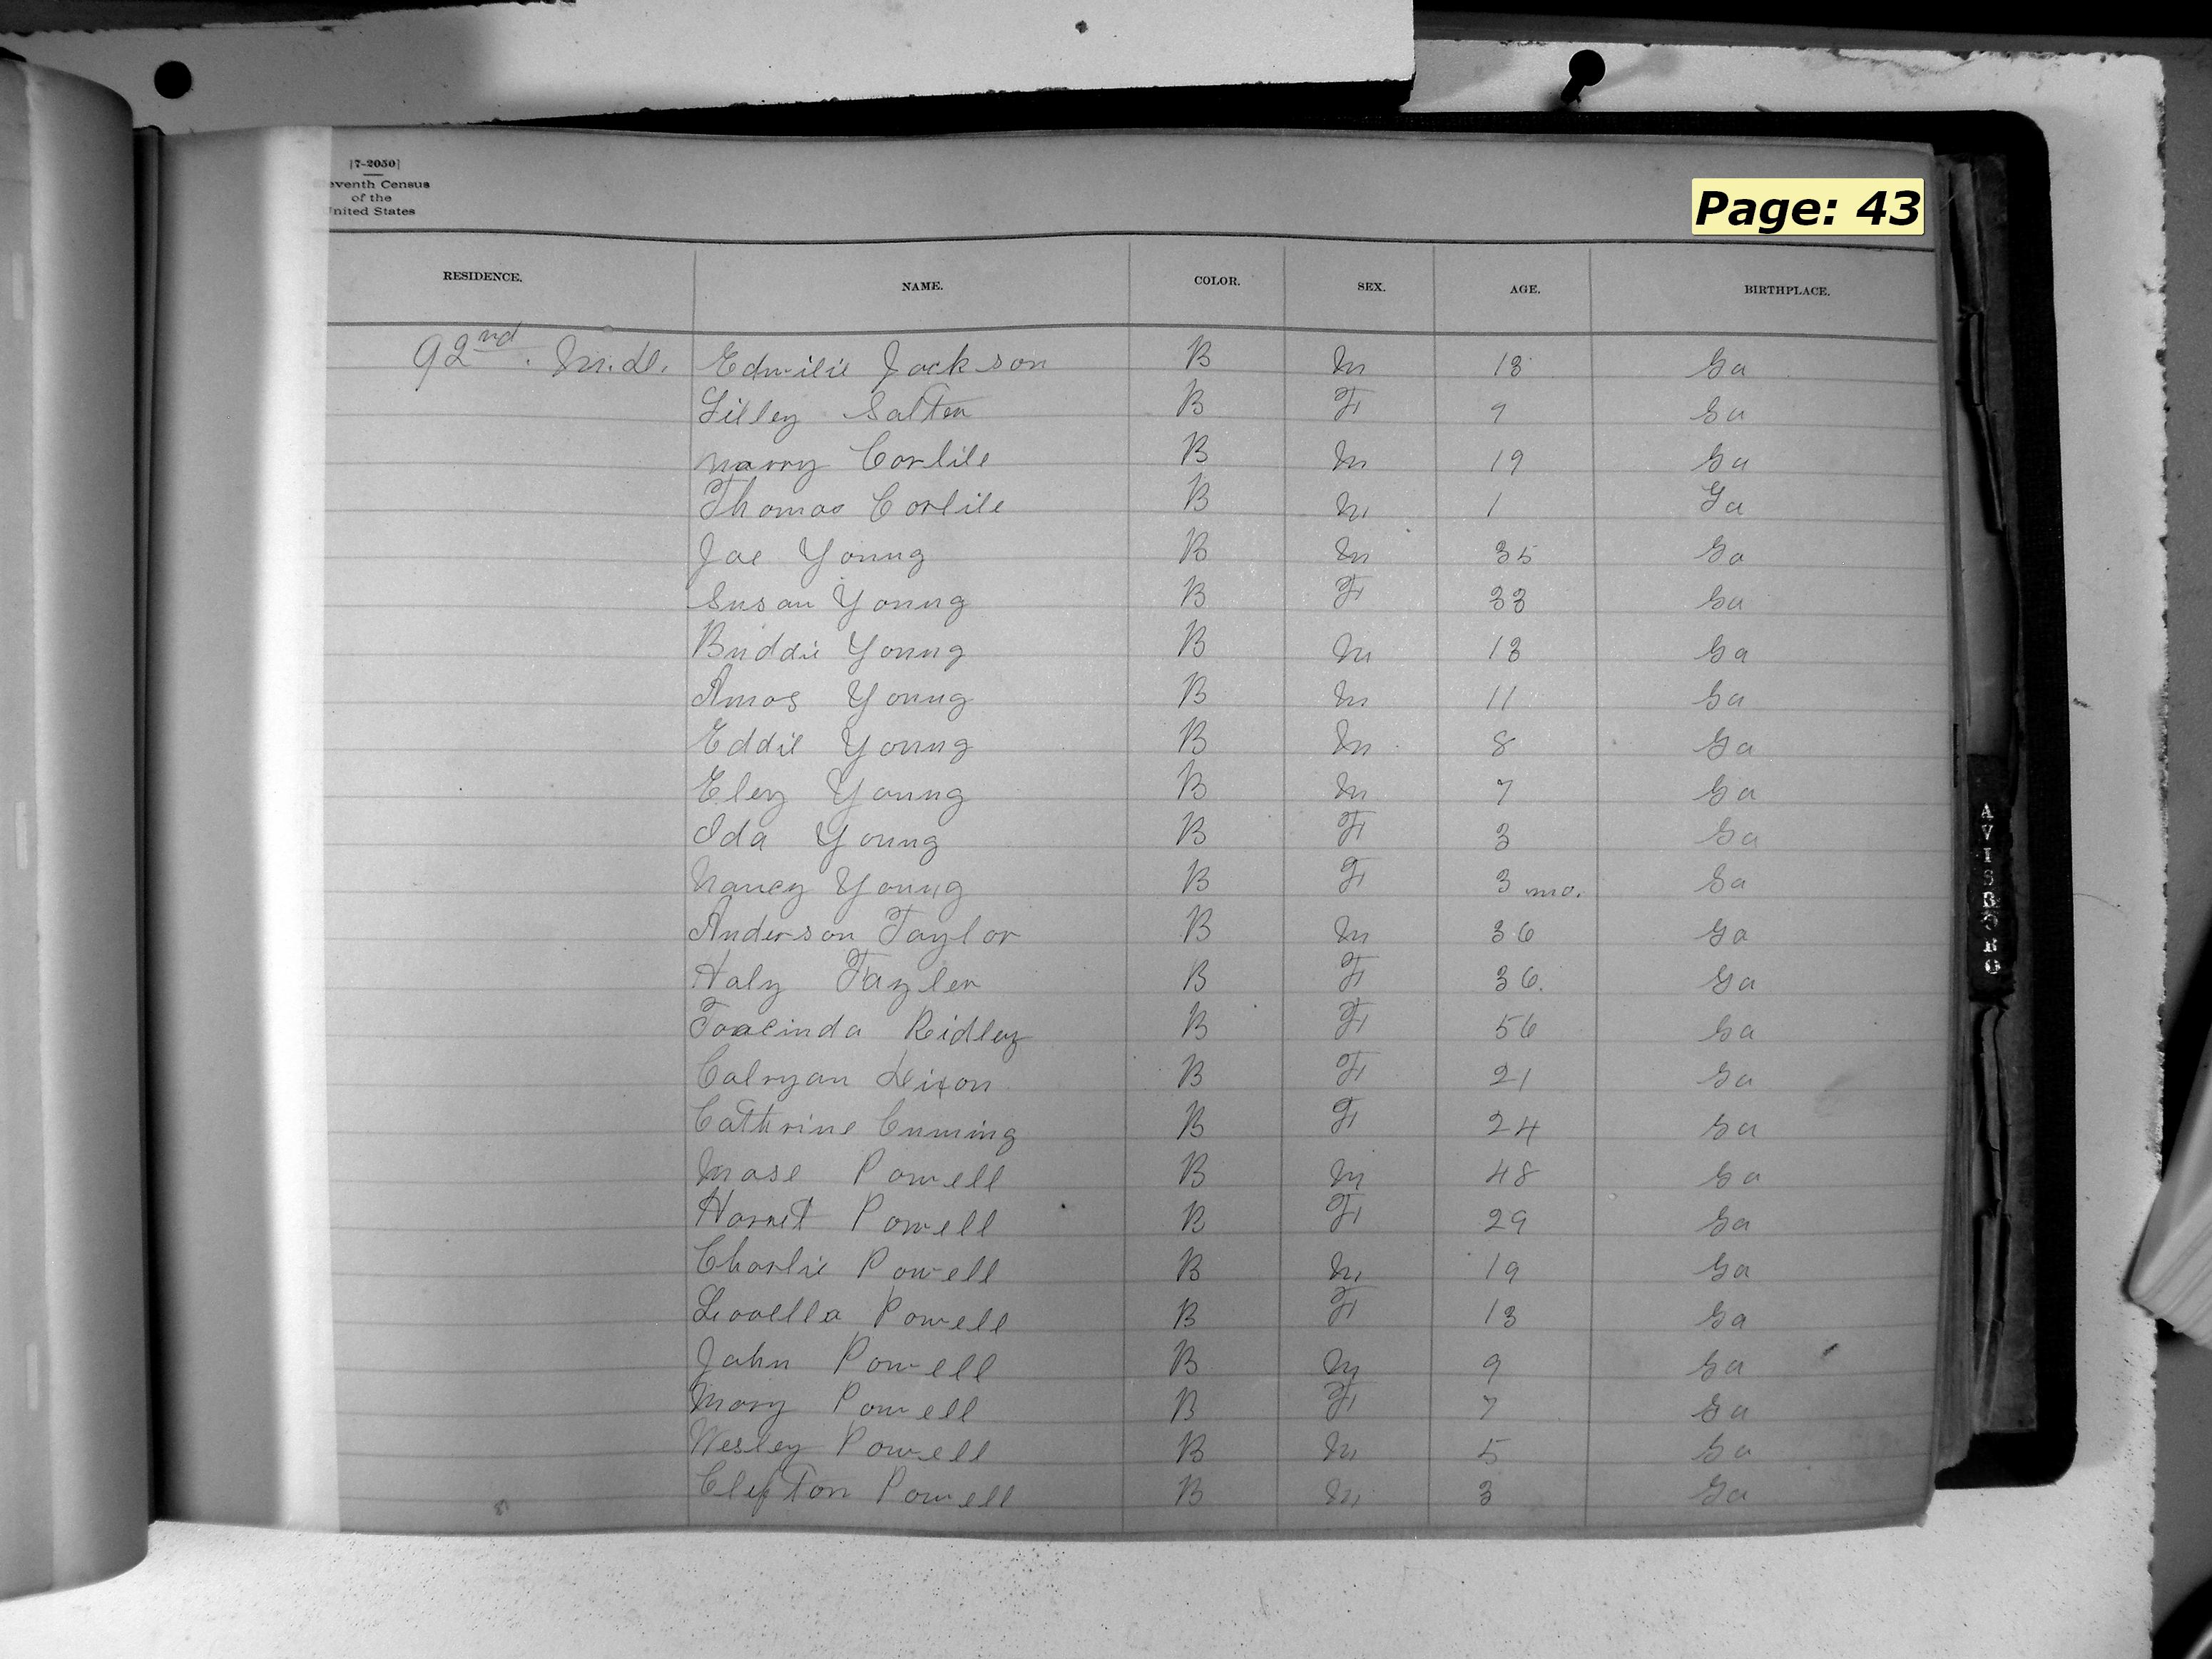 [7-2050]
eventh Census
of the
United States
Page: 43
RESIDENCE. NAME. COLOR. SEX. AGE. BIRTHPLACE.
92nd. M.D. Edmilie Jackson B M 13 Ga
Lilley Salter B F 9 Ga
Marry Corlile B M 19 Ga
Thomas Corlile B M 1 Ga
Joe Young B M 35 Ga
Susan Young B F 33 Ga
Buddie Young B M 13 Ga
Amos Young B M 11 Ga
Eddie Young B M 8 Ga
Eley Young B M 7 Ga
Ida Young B F 3 Ga
Nancy Young B F 3 mo. Ga
Anderson Taylor B M 36 Ga
Haly Tayler B F 36. Ga
Ridley B F 56 Ga
Dixon B F 21 Ga
Cathrine Cuming B F 24 Ga
Mose Powell B M 48 Ga
Harret Powell B F 29 Ga
Charlie Powell B M 19 Ga
Powell B F 13 Ga
John Powell B M 9 Ga
Mary Powell B F 7 Ga
Wesley Powell B M 5 Ga
Clifton Powell B M 3 Ga
AVISBORO